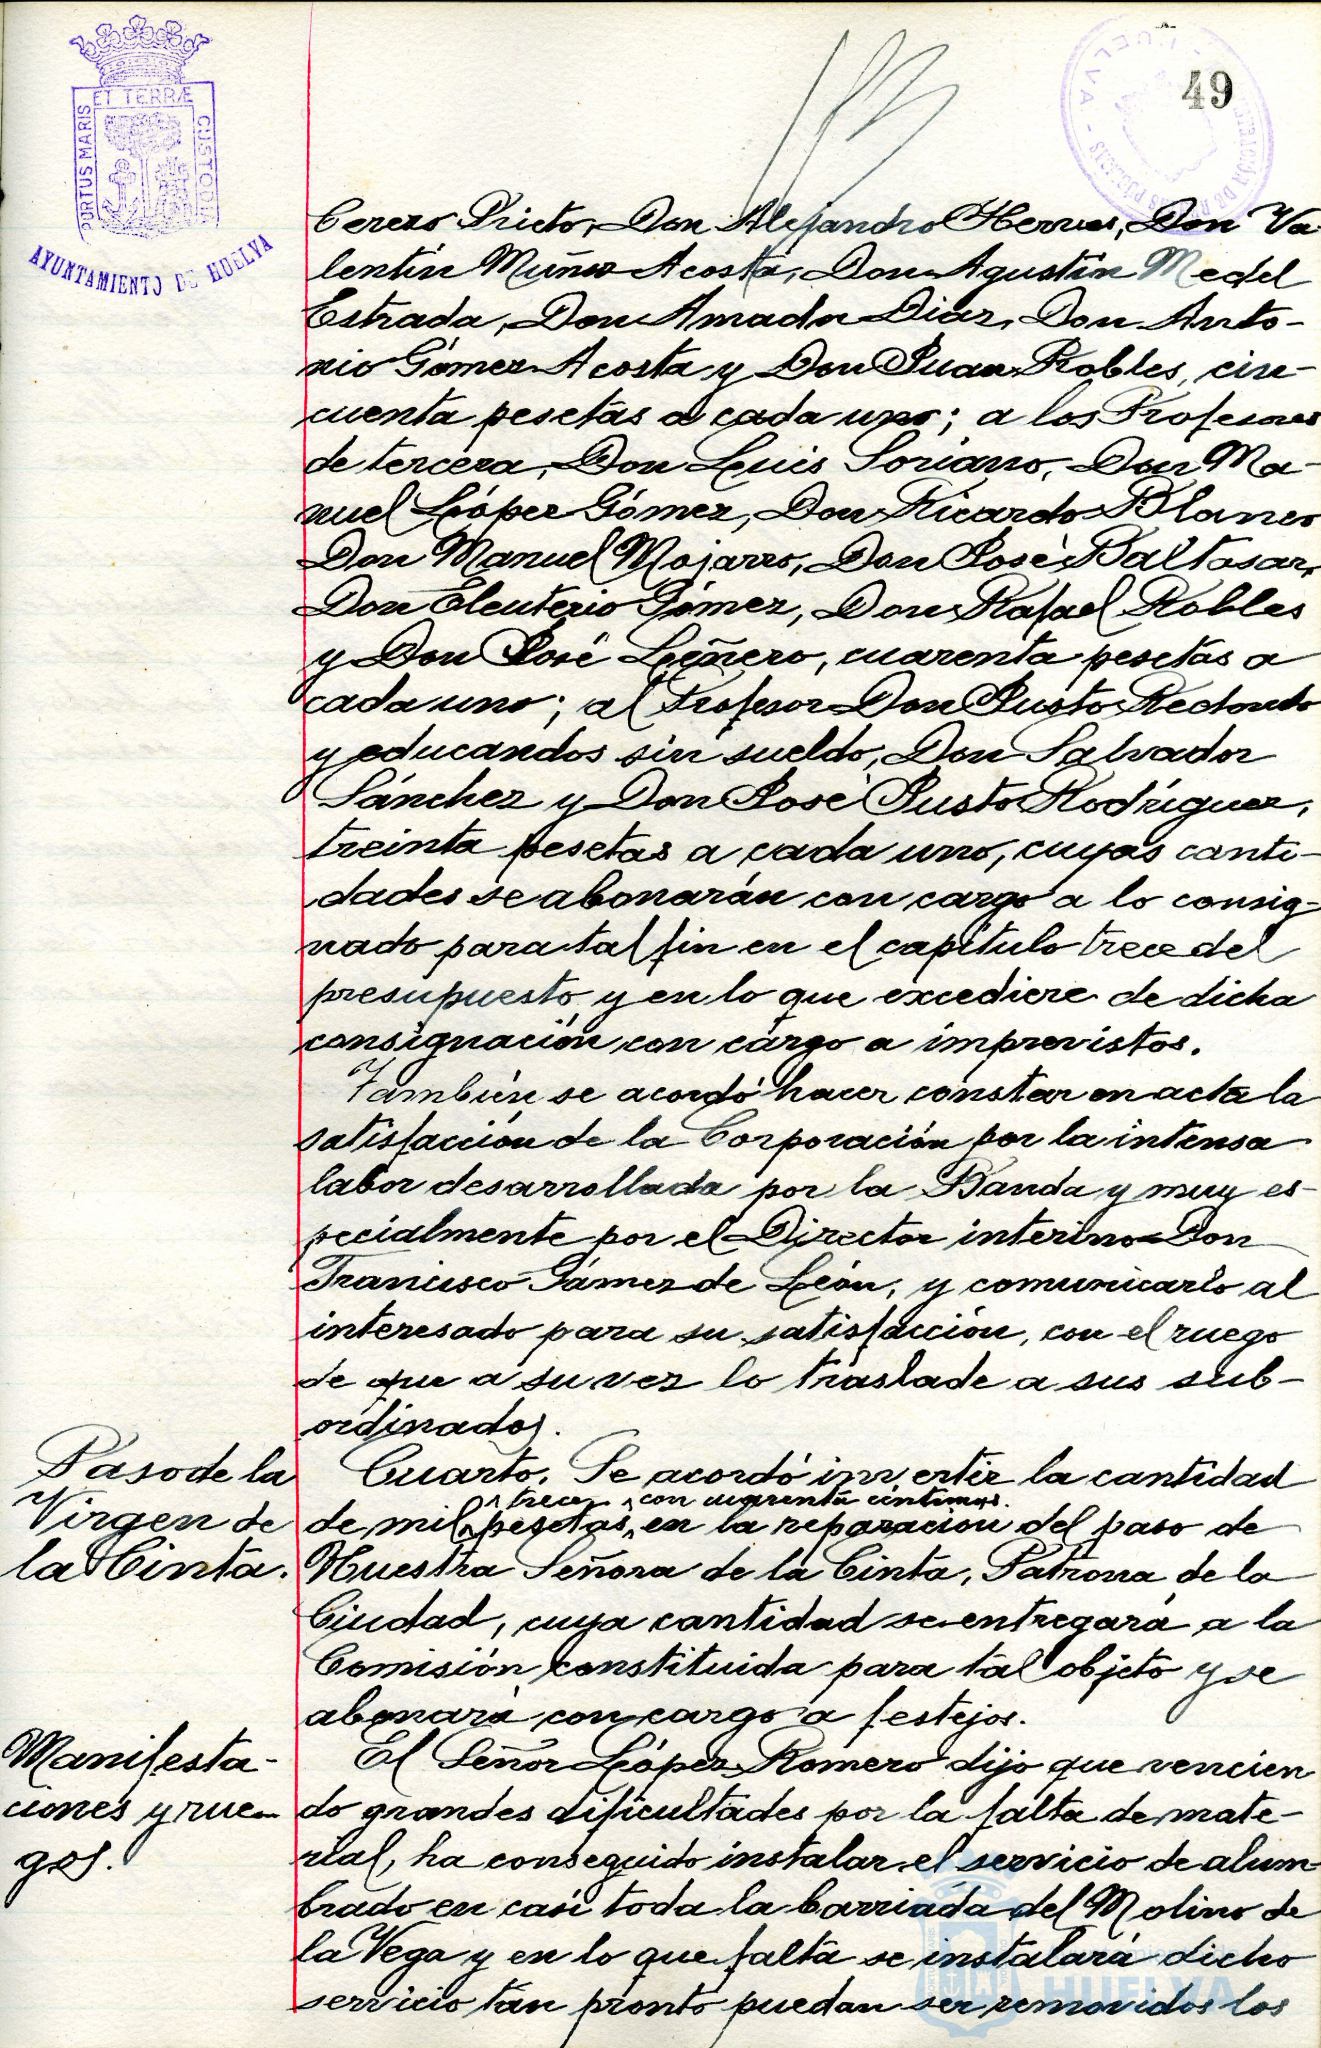 49
PORTUS MARIS
ET TERRÆ
CUSTODIA
AYUNTAMIENTO DE HUELVA
Cerezo Prieto, Don Alejandro Hervas, Don Va-
lentín Muñoz Acosta, Don Agustín Medel
Estrada, Don Amado Diaz, Don Anto-
nio Gómez Acosta y Don Juan Robles, cin-
cuenta pesetas a cada uno; a los Profesores
de tercera, Don Luis Soriano, Don Ma-
nuel López Gómez, Don Ricardo Blanco
Don Manuel Mojarro, Don José Baltasar,
Don Eleuterio Gómez, Don Rafael Robles
y Don José Leñero, cuarenta pesetas a
cada uno; al Profesor Don Justo Redondo
y educandos sin sueldo, Don Salvador
Sánchez y Don José Justo Rodríguez,
treinta pesetas a cada uno, cuyas canti-
dades se abonarán con cargo a lo consig-
nado para tal fin en el capítulo trece del
presupuesto y en lo que excediere de dicha
consignación con cargo a imprevistos.
También se acordó hacer constar en acta la
satisfacción de la Corporación por la intensa
labor desarrollada por la Banda y muy es-
pecialmente por el Director interino Don
Francisco Gámez de León, y comunicarlo al
interesado para su satisfacción, con el ruego
de que a su vez lo traslade a sus sub-
ordinados.
Paso de la
Virgen de
la Cinta.
Cuarto. Se acordó invertir la cantidad
trece con cuarenta céntimos.
de mil pesetas, en la reparación del paso de
Nuestra Señora de la Cinta, Patrona de la
Ciudad, cuya cantidad se entregará a la
Comisión constituida para tal objeto y se
abonará con cargo a festejos.
Manifesta-
ciones y rue-
gos.
El Señor López Romero dijo que vencien
do grandes dificultades por la falta de mate-
rial, ha conseguido instalar el servicio de alum-
brado en casi toda la barriada del Molino de
la Vega y en lo que falta se instalará dicho
servicio tan pronto puedan ser removidos los
HUELVA